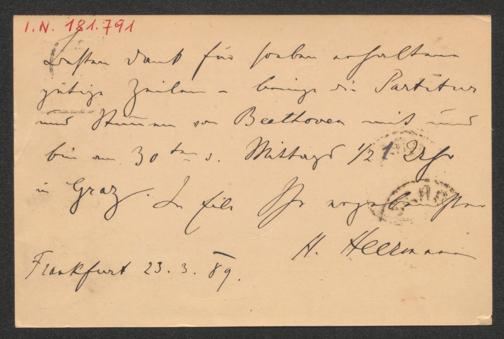 I.N. 181.791
Besten Dank für soeben erhaltene
gütige Zeilen – bringe die Partitur
und Stimmen von Beethoven mit und
bin am 30ten d. Mittags 1/2 1 Uhr
in Graz. In Eile Ihr ergebenster
H. Heermann
Frankfurt 23. 3. 89.